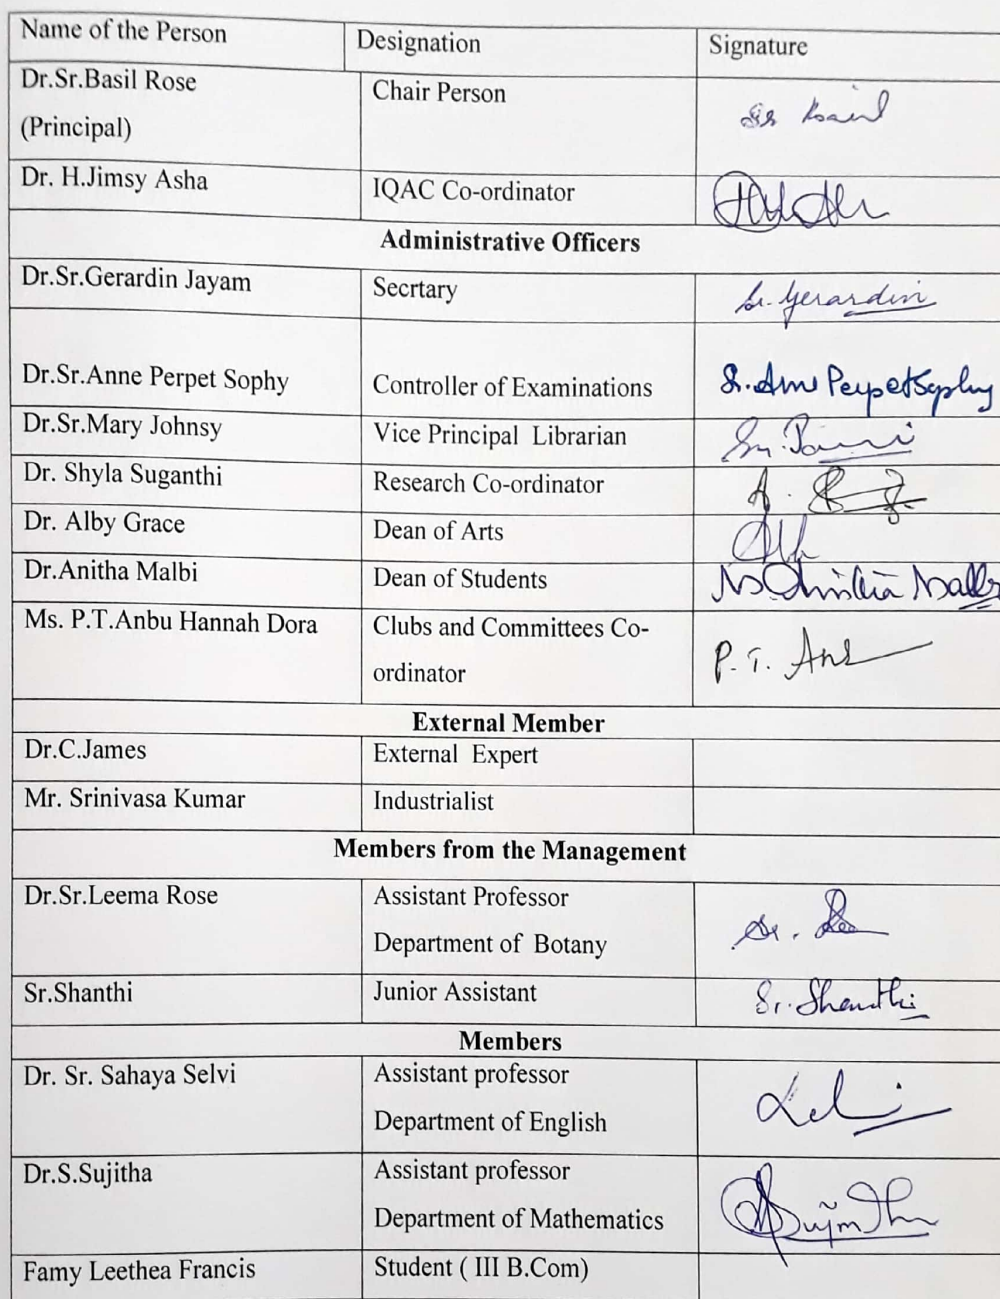 Name of the Person Designation Signature
Dr.Sr.Basil Rose Chair Person
(Principal)
Dr. H.Jimsy Asha IQAC Co-ordinator
Administrative Officers
Dr.Sr.Gerardin Jayam Secrtary Sr. Gerardin
Dr.Sr.Anne Perpet Sophy Controller of Examinations Sr. Anne Perpet Sophy
Dr.Sr.Mary Johnsy Vice Principal Librarian
Dr. Shyla Suganthi Research Co-ordinator
Dr. Alby Grace Dean of Arts
Dr.Anitha Malbi Dean of Students
Ms. P.T.Anbu Hannah Dora Clubs and Committees Co-
ordinator P. T. Anb
External Member
Dr.C.James External Expert
Mr. Srinivasa Kumar Industrialist
Members from the Management
Dr.Sr.Leema Rose Assistant Professor
Department of Botany
Sr.Shanthi Junior Assistant Sr. Shanthi
Members
Dr. Sr. Sahaya Selvi Assistant professor
Department of English
Dr.S.Sujitha Assistant professor
Department of Mathematics
Famy Leethea Francis Student ( III B.Com)